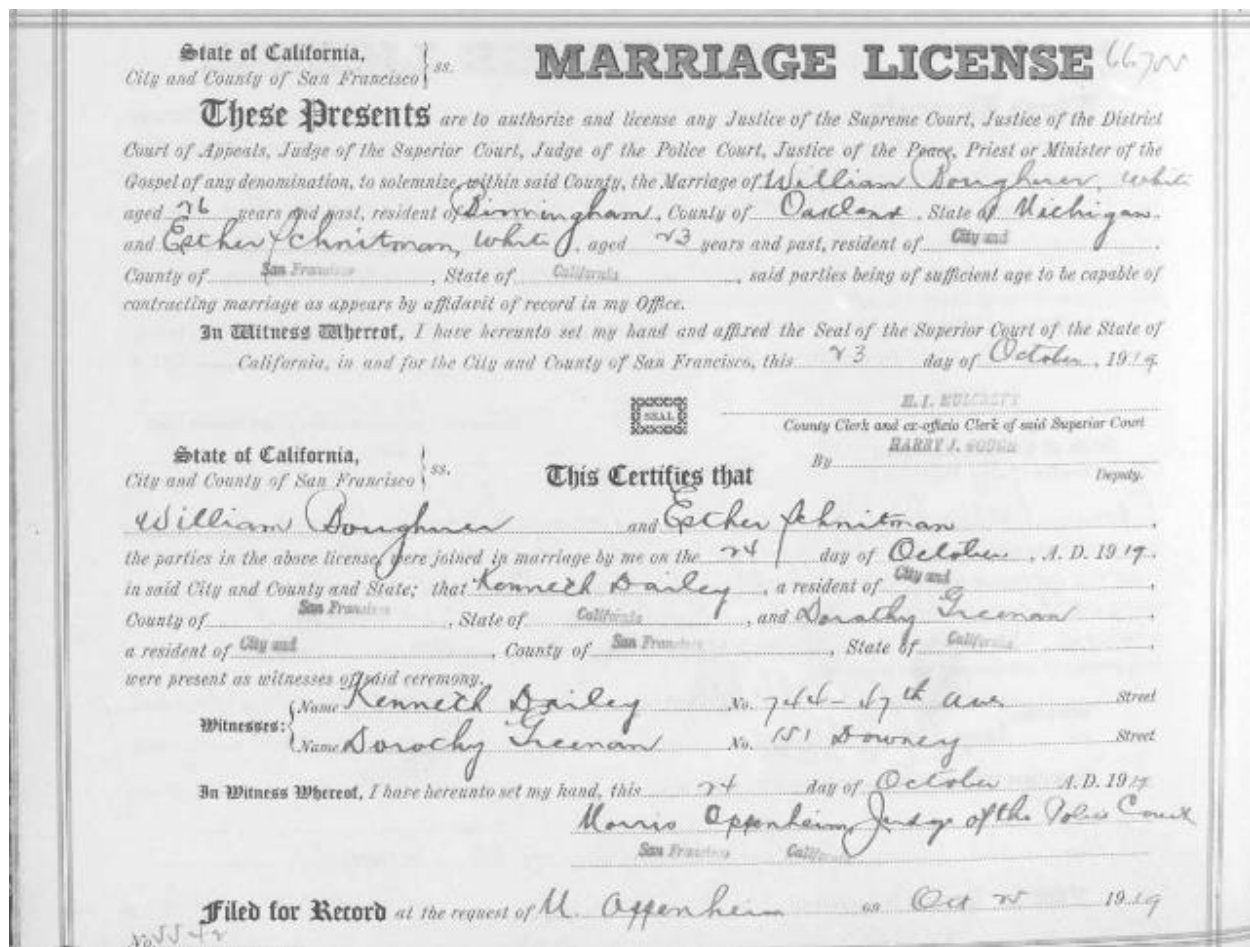 State of California, } ss. MARRIAGE LICENSE
City and County of San Francisco
These Presents are to authorize and license any Justice of the Supreme Court, Justice of the District
Court of Appeals, Judge of the Superior Court, Judge of the Police Court, Justice of the Peace, Priest or Minister of the
Gospel of any denomination, to solemnize within said County, the Marriage of William Boughner, White
aged 26 years and past, resident of Birmingham, County of Oakland, State of Michigan.
and Esther Schnitman, White, aged 23 years and past, resident of City and
County of San Francisco, State of California, said parties being of sufficient age to be capable of
contracting marriage as appears by affidavit of record in my Office.
In Witness Whereof, I have hereunto set my hand and affixed the Seal of the Superior Court of the State of
California, in and for the City and County of San Francisco, this 23 day of October, 1919.
H. I. MULCREVY
SEAL County Clerk and ex-officio Clerk of said Superior Court
State of California, } ss. This Certifies that By HARRY J.
City and County of San Francisco Deputy.
William Boughner and Esther Schnitman
the parties in the above license, were joined in marriage by me on the 24 day of October, A. D. 1919.
in said City and County and State; that Kenneth Dailey, a resident of City and
County of San Francisco, State of California, and Dorothy Freeman
a resident of City and, County of San Francisco, State of California,
were present as witnesses of said ceremony.
Witnesses: { Name Kenneth Dailey No. 744-47th Ave Street
Name Dorothy Freeman No. 151 Downey Street
In Witness Whereof, I have hereunto set my hand, this 24 day of October A. D. 1919
Morris Oppenheim, Judge of the Police Court
San Francisco California
Filed for Record at the request of M. Oppenheim on Oct 25 1919
No.